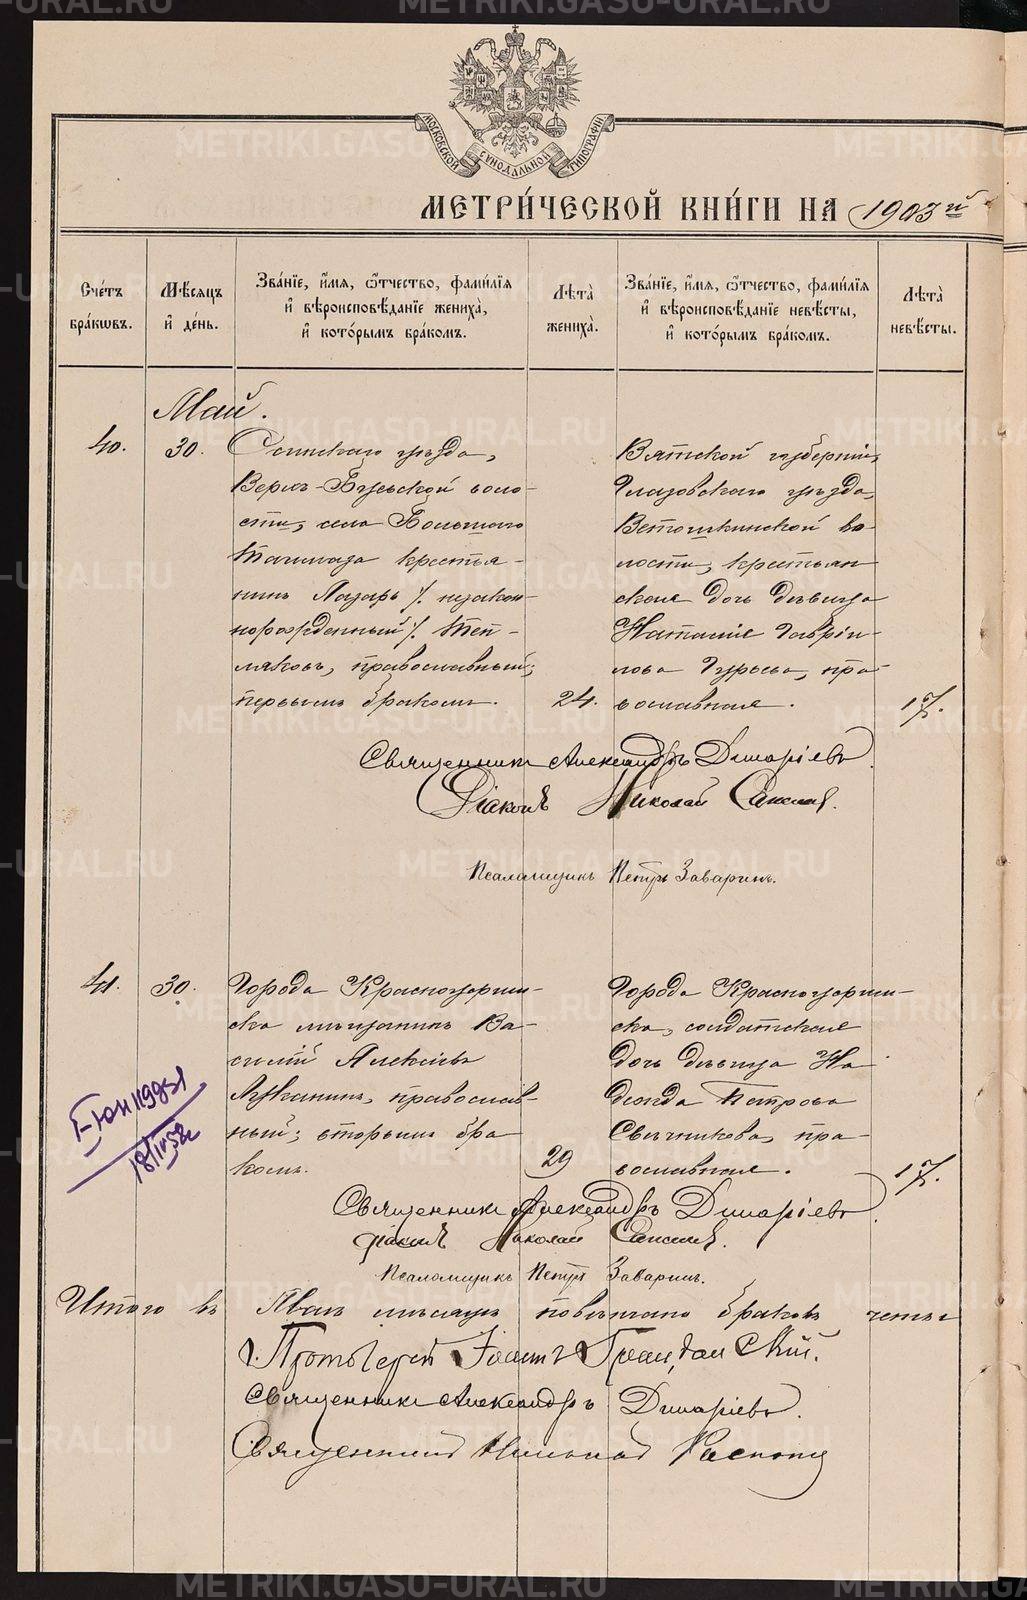 МОСКОВСКОЙ СѴНОДАЛЬНОЙ ТИПОГРАФІИ
МЕТРИ́ЧЕСКОЙ КНИ́ГИ НА 1903й
Сче́тъ бра́кѡвъ.
Мѣ́сяцъ и҆ де́нь.
Зва́нїе, и҆́мя, ѻ҆́тчество, фами́лїя и҆ вѣроисповѣ́данїе жениха̀, и҆ кото́рымъ бра́комъ.
Лѣта̀ жениха̀.
Зва́нїе, и҆́мя, ѻ҆́тчество, фами́лїя и҆ вѣроисповѣ́данїе невѣ́сты, и҆ кото́рымъ бра́комъ.
Лѣта̀ невѣ́сты.
Май.
40.
30.
Осинскаго уѣзда,
Верхъ-Буевской воло-
сти, села Большого
крестья-
нинъ Лазарь /. незакон-
норожденный /. Теп-
ляковъ, православный;
первымъ бракомъ.
24.
Вятской губерніи,
Глазовскаго уѣзда,
Ветошкинской во-
лости, крестьян
ская дочь дѣвица
Наталія Гаврі-
лова Гурьева, пра-
вославная.
17.
Священникъ Александръ Димаріевъ.
Діаконъ Николай
Псаломщикъ Петръ Заваринъ.
41.
30.
Города Красноуфим-
ска мѣщанинъ Ва-
силій Алексѣевъ
православ-
ный; вторымъ бра
комъ.
29
Города Красноуфим-
ска, солдатская
дочь дѣвица На
дежда Петрова
Свѣчникова, пра-
вославная.
17.
18/IV 58г
Священникъ Александръ Димаріевъ.
Діаконъ Николай
Псаломщикъ Петръ Заваринъ.
Итого въ Маѣ мѣсяцѣ повѣнчано браковъ четы
Протоіерей Іоаннъ
Священникъ Александръ Димаріевъ.
Священникъ Николай
METRIKI.GASO-URAL.RU